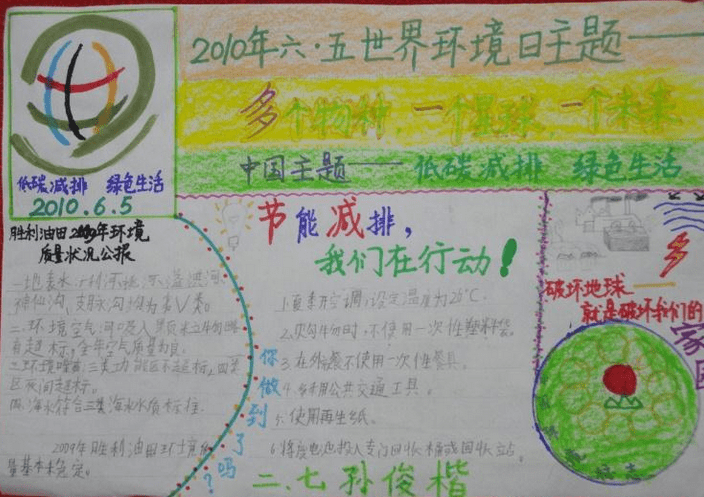 2010年六·五世界环境日主题——
多个物种,一个星球,一个未来
中国主题—— 低碳减排 绿色生活
低碳减排 绿色生活
2010.6.5
胜利油田2009年环境
质量状况公报
神仙沟、支脉沟均为劣Ⅴ类。
有超标,全年空气质量为良。
三.环境噪声:三类功能区不超标,四类
区夜间超标。
四.海水符合三类海水水质标准.
2009年胜利油田环境质
量基本稳定。
节能减排,
我们在行动!
1.夏季开空调,设定温度为26°C.
2.购物时,不使用一次性塑料袋.
3.在外餐不使用一次性餐具.
4.多利用公共交通工具.
5.使用再生纸.
6.将废电池投入专门回收桶或回收站.
你做到了吗?
破坏地球——
就是破坏我们的
家园
二.七 孙俊楷